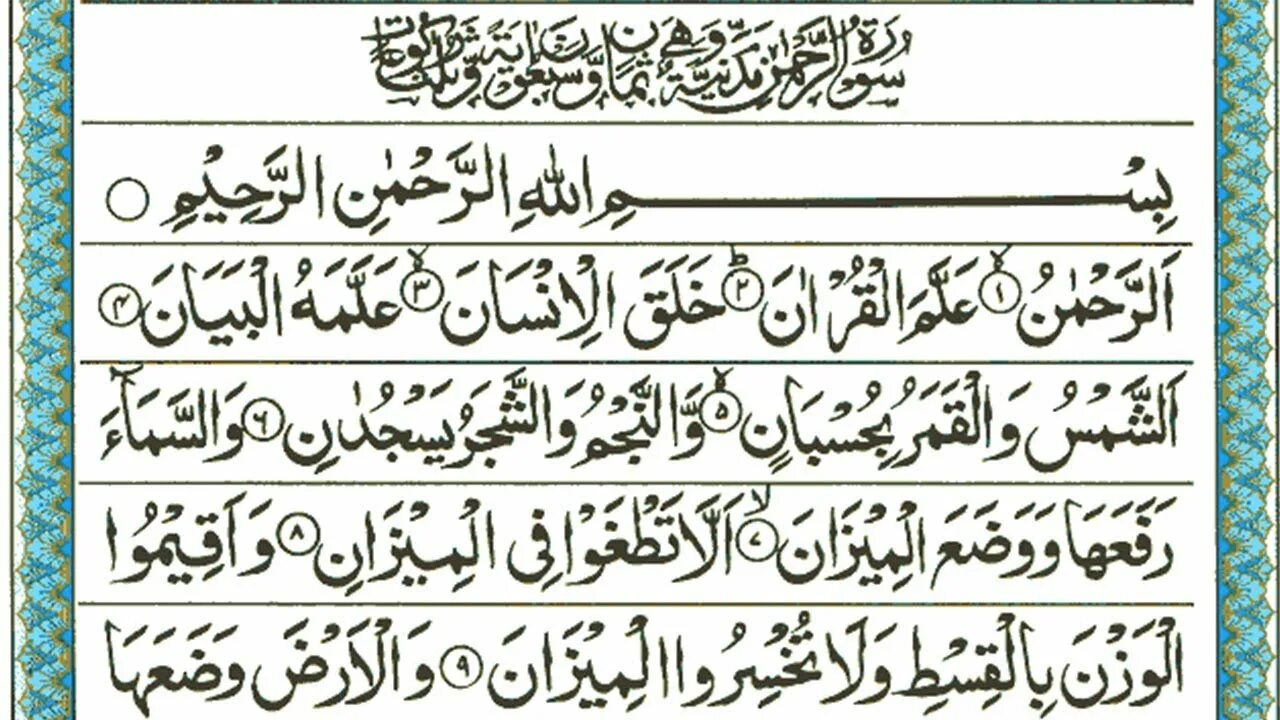 سُوْرَةُ الرَّحْمٰنِ مَدَنِيَّةٌ وَّهِيَ ثَمَانٌ وَّسَبْعُوْنَ اٰيَةً وَّثَلٰثُ رُكُوْعَاتٍ
بِسْمِ اللهِ الرَّحْمٰنِ الرَّحِيْمِ
اَلرَّحْمٰنُ ۙ۱ عَلَّمَ الْقُرْاٰنَ ؕ۲ خَلَقَ الْاِنْسَانَ ۙ۳ عَلَّمَهُ الْبَيَانَ ۴
اَلشَّمْسُ وَالْقَمَرُ بِحُسْبَانٍ ۙ۵ وَّالنَّجْمُ وَالشَّجَرُ يَسْجُدٰنِ ۶ وَالسَّمَآءَ
رَفَعَهَا وَوَضَعَ الْمِيْزَانَ ۙ۷ اَلَّا تَطْغَوْا فِى الْمِيْزَانِ ۸ وَاَقِيْمُوا
الْوَزْنَ بِالْقِسْطِ وَلَا تُخْسِرُوا الْمِيْزَانَ ۹ وَالْاَرْضَ وَضَعَهَا